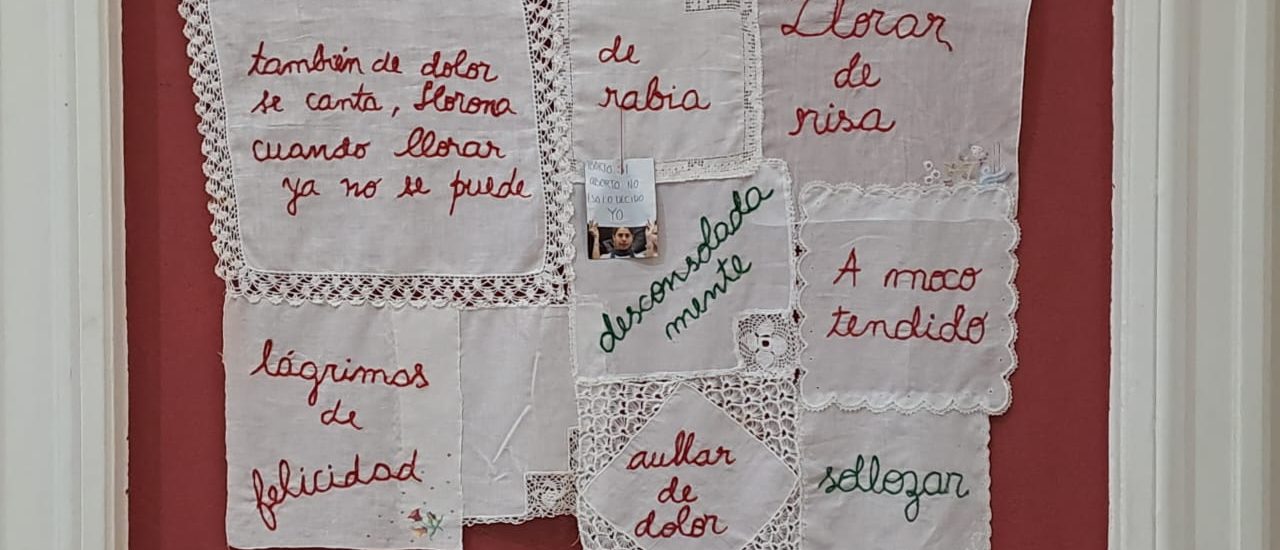 también de dolor
se canta, llorona
cuando llorar
ya no se puede
de
rabia
Llorar
de
risa
ABORTO NO
ESO LO DECIDO
YO
desconsolada
mente
A moco
tendido
lágrimas
de
felicidad
aullar
de
dolor
sollozar